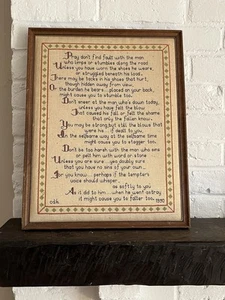 Pray don't find fault with the man
who limps or stumbles along the road
Unless you have worn the shoes he wears
or struggled beneath his load.
There may be tacks in his shoes that hurt,
though hidden away from view,
Or the burden he bears, placed on your back,
might cause you to stumble too.
Don't sneer at the man who's down today,
unless you have felt the blow
That caused his fall or felt the shame
that only the fallen know.
You may be strong, but still the blows
that were his, if dealt to you,
In the selfsame way at the selfsame time
might cause you to stagger too.
Don't be too harsh with the man who sins
or pelt him with word or stone
Unless you are sure, yes doubly sure
that you have no sins of your own.
For you know, perhaps if the tempter's
voice should whisper
as softly to you
As it did to him when he went astray
it might cause you to falter too.
1990